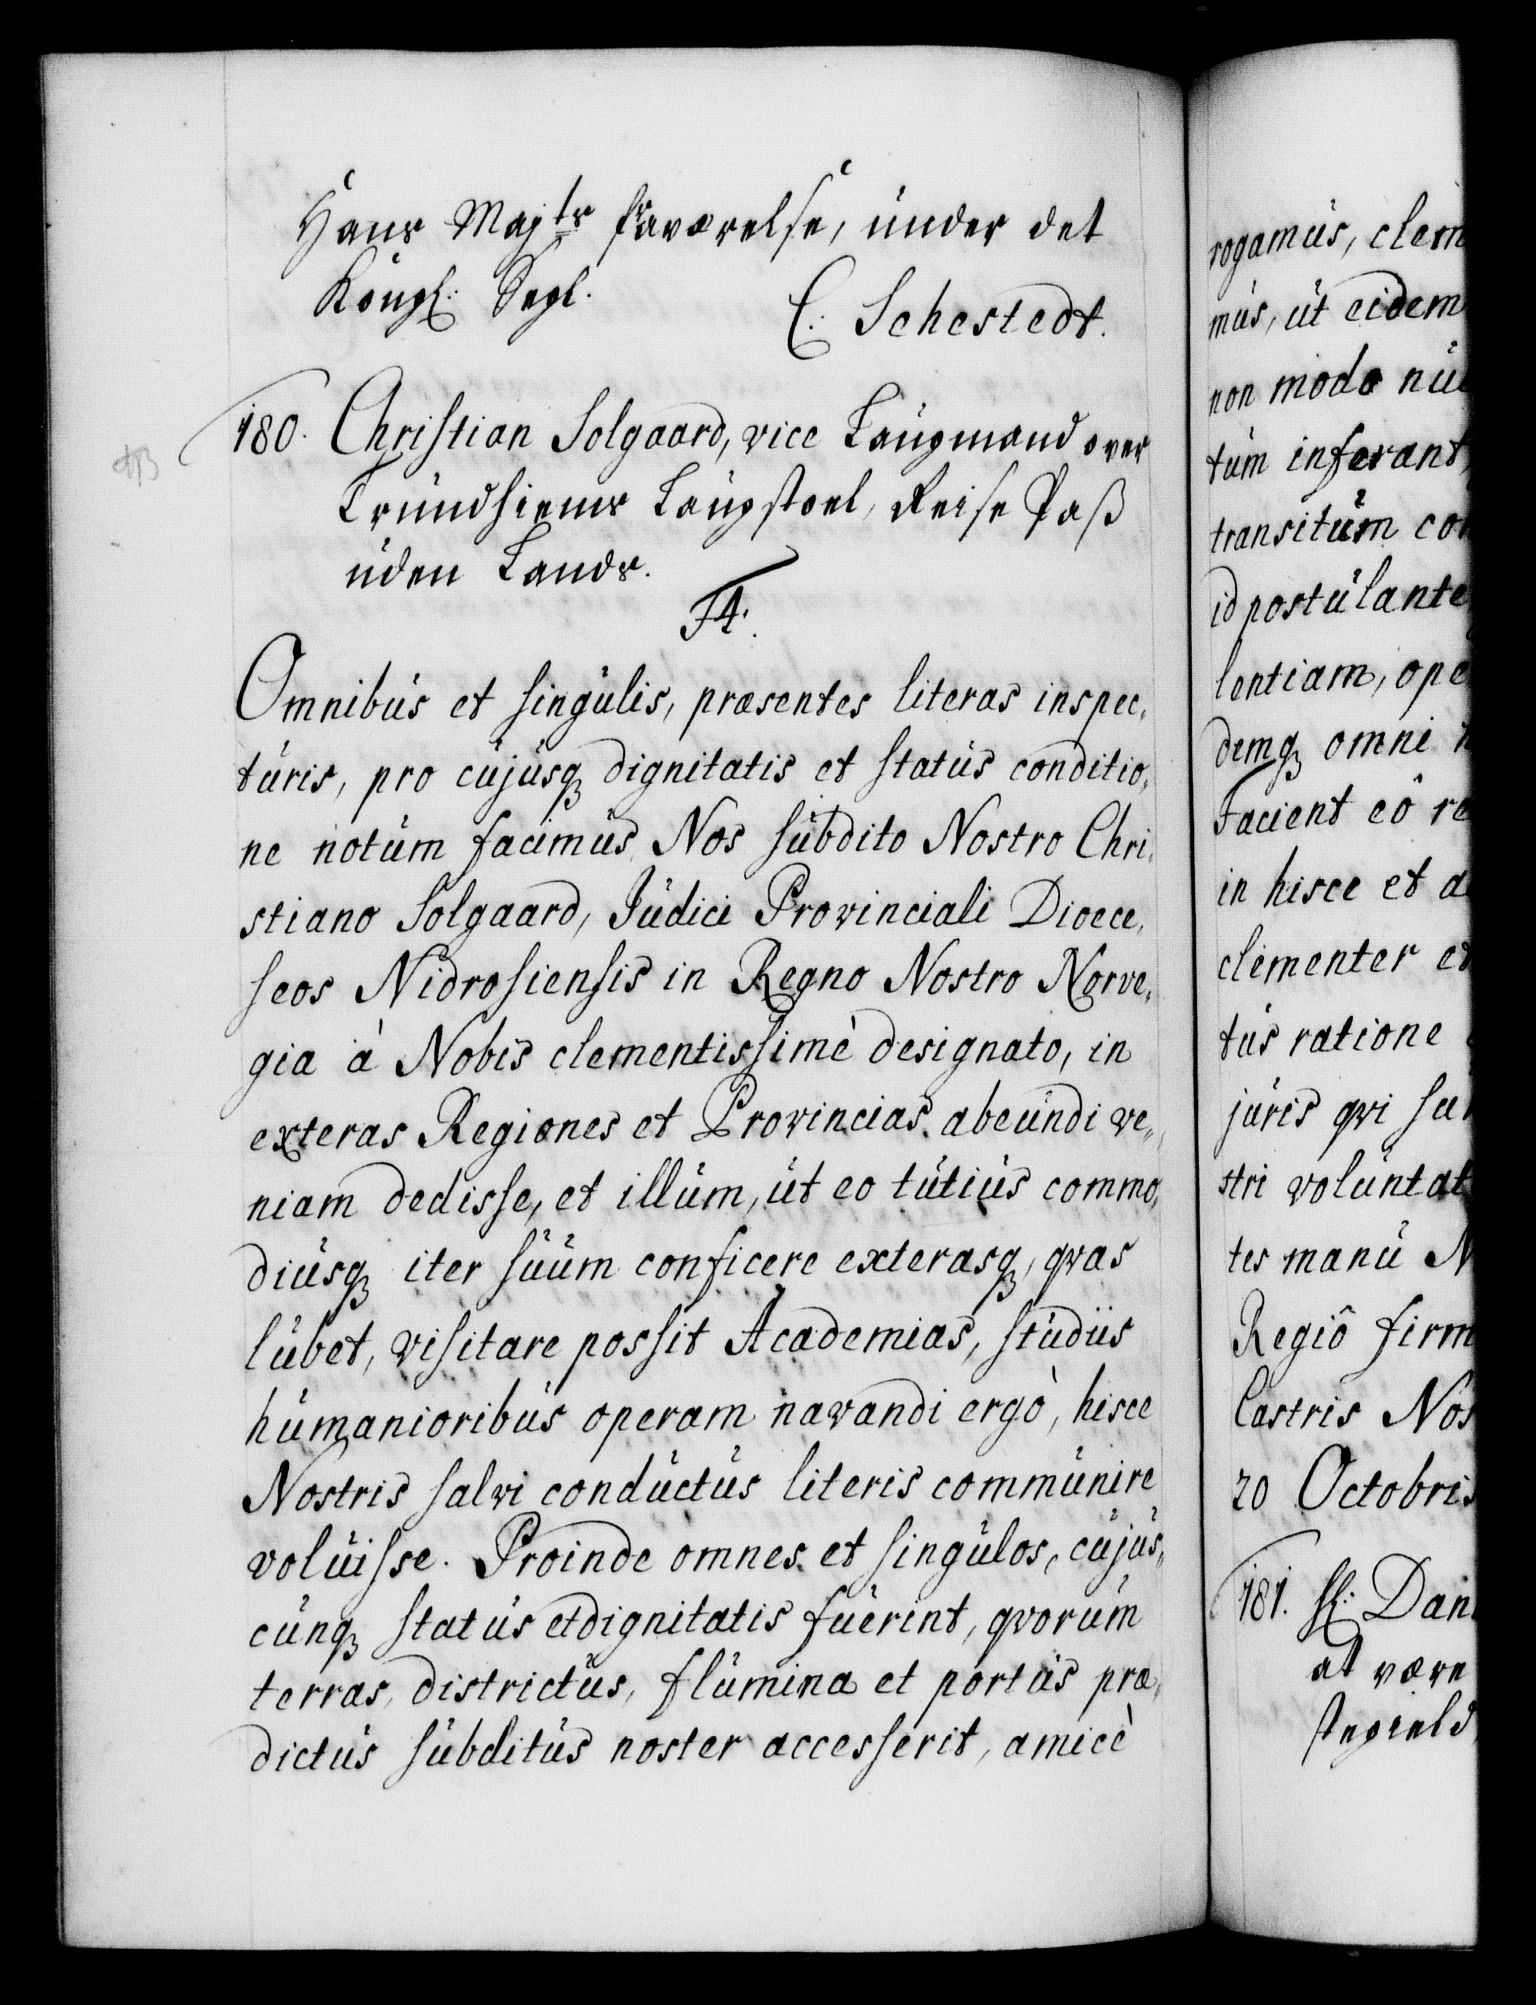 Hans Majts fraværelse, under det
Kongl: Segl.
C. Schestedt.
180. Christian Solgaard, vice Laugmand over
Trundhiems Laugstoel, Reise Paß
uden Lands.
F4.
Omnibus et singulis, præsentes literas inspec,
turis, pro cujusq dignitatis et status conditio,
ne notum facimus Nos subdito Nostro Chri,
stiano Solgaard, Judici Provinciali Dioece,
seos Nidrosiensis in Regno Nostro Norve,
gia à Nobis clementissimè designato, in
exteras Regiones et Provincias abeundi ve,,
niam dedisse, et illum, ut eo tutius commo,
diusq iter suum conficere exterasq, qvas
lubet, visitare possit Academias, studiis
humanioribus operam navandi ergò, hisce
Nostris salvi conductus literis communire
voluisse. Proinde omnes et singulos, cujus,
cunq status et dignitatis fuerint, qvorum
terras, districtus, flumina et portus præ,
dictus subditus noster accesserit, amicè
rogamus, clem
mus, ut eidem
non modo nul
tum inferant,
transitum con
id postulante
lentiam, ope
demq omni
Facient eô re
in hisce et a
clementer et
tus ratione
juris qvi su
stri voluntat
tes manu N
Regiô firm
Castris Nos
20 Octobris
181. Sl: Dan
at være